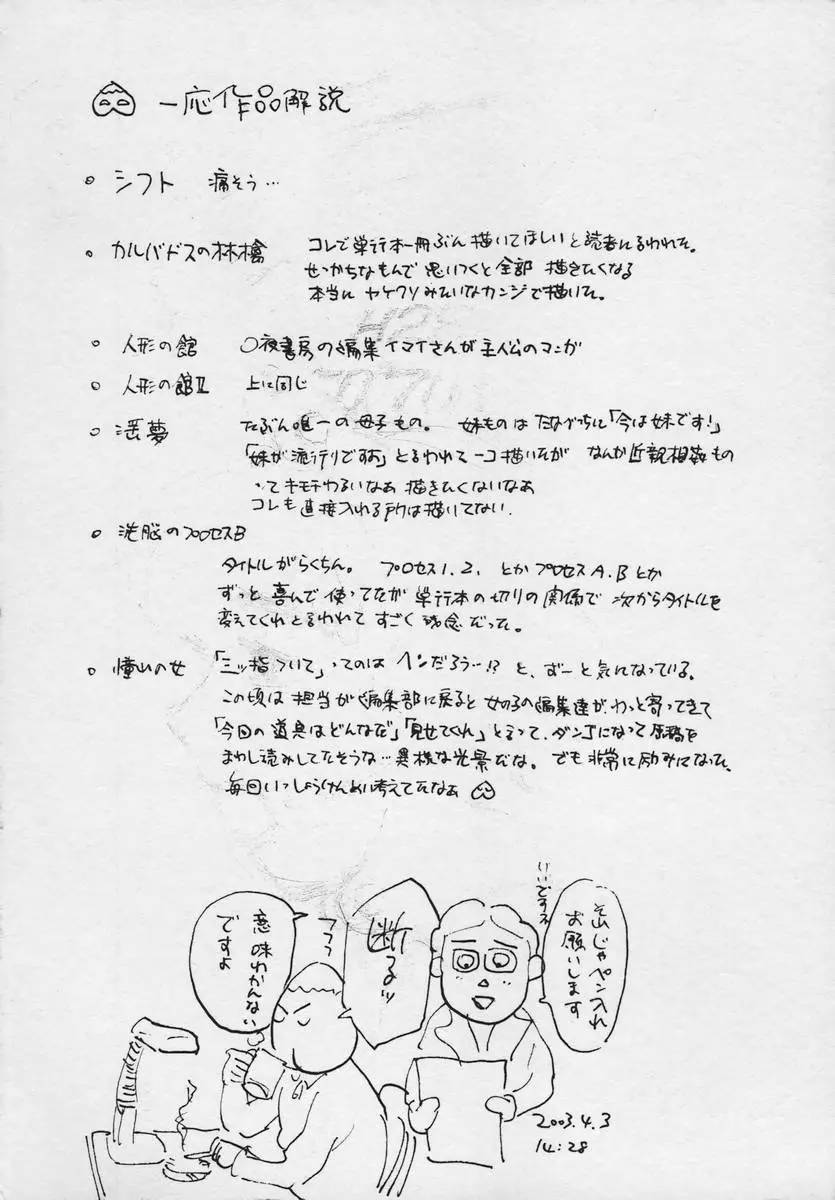 一応作品解説
○ シフト 痛そう…
○ カルバドスの林檎 コレで単行本一冊ぶん描いてほしいと読者に言われた。
せっかちなもんで思いつくと全部 描きたくなる
本当に ヤケクソみたいなカンジで描いた。
○ 人形の館 ○夜書房の編集イマイさんが主人公のマンガ
○ 人形の館Ⅱ 上に同じ
○ 淫夢 たぶん唯一の母子もの。 妹ものは たなべっちに「今は妹です!」
「妹が流行りですよ」と言われて一コ描いたが なんか近親相姦もの
ってキモチわるいなぁ 描きたくないなぁ
コレも直接入れる所は描いてない.
○ 洗脳のプロセスB
タイトルがらくちん。 プロセス1.2. とか プロセスA.Bとか
ずっと喜んで使ってたが 単行本の切りの関係で 次からタイトルを
変えてくれと言われて すごく残念だった。
○ 憧れの女 「三ッ指ついて」ってのは ヘンだろう…!? と、ずーと気になっている。
この頃は担当が編集部に戻ると 女の子の編集達が、わっと寄ってきて
「今回の道具はどんなだ」「見せてくれ」と言って、ダンゴになって原稿を
まわし読みしてたそうな…異様な光景だな。 でも非常に励みになった。
毎回いっしょうけんめい考えてたなぁ
そいじゃペン入れ
お願いします
断るッ
フフフ
意味わかんない
ですよ
2003.4.3
14:28